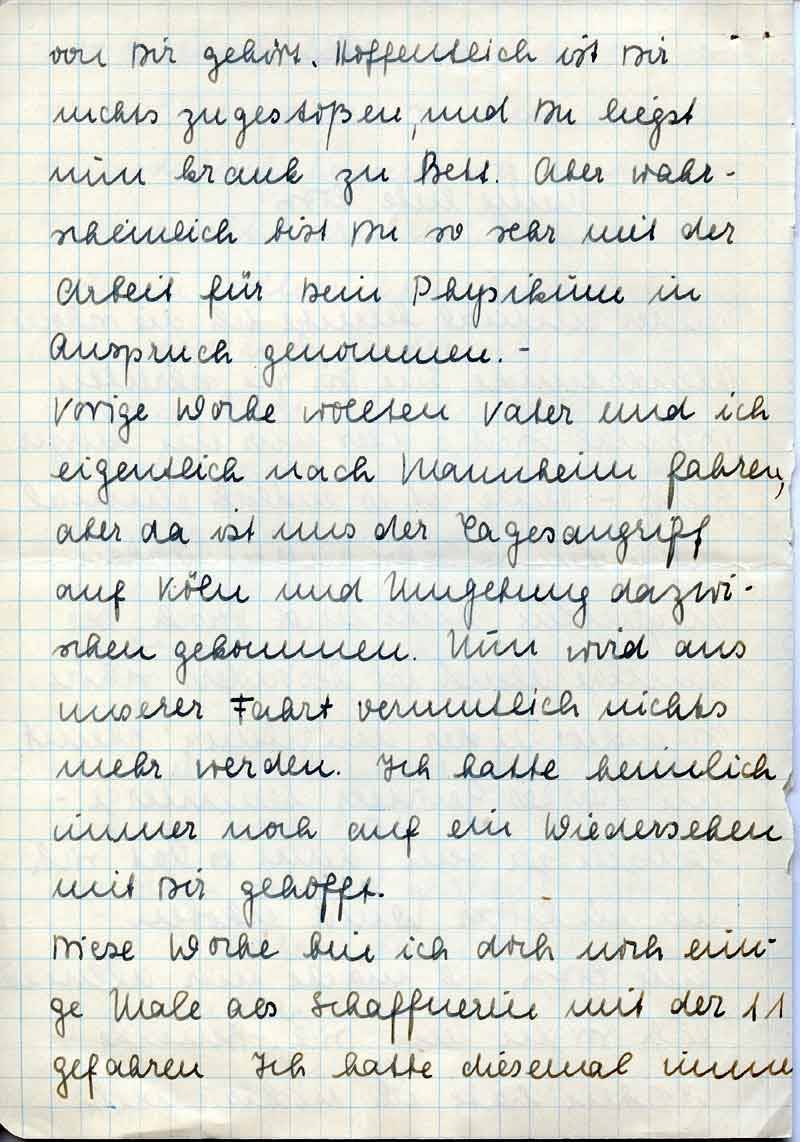 von Dir gehört. Hoffentlich ist Dir
nichts zugestoßen, und Du liegst
nun krank zu Bett. Aber wahr-
scheinlich bist Du so sehr mit der
Arbeit für Dein Physikum in
Anspruch genommen. -
Vorige Woche wollten Vater und ich
eigentlich nach Mannheim fahren,
aber da ist uns der Tagesangriff
auf Köln und Umgebung dazwi-
schen gekommen. Nun wird aus
unserer Fahrt vermutlich nichts
mehr werden. Ich hatte heimlich
immer noch auf ein Wiedersehen
mit Dir gehofft.
Diese Woche bin ich doch noch eini-
ge Male als Schaffnerin mit der 11
gefahren Ich hatte diesemal imme